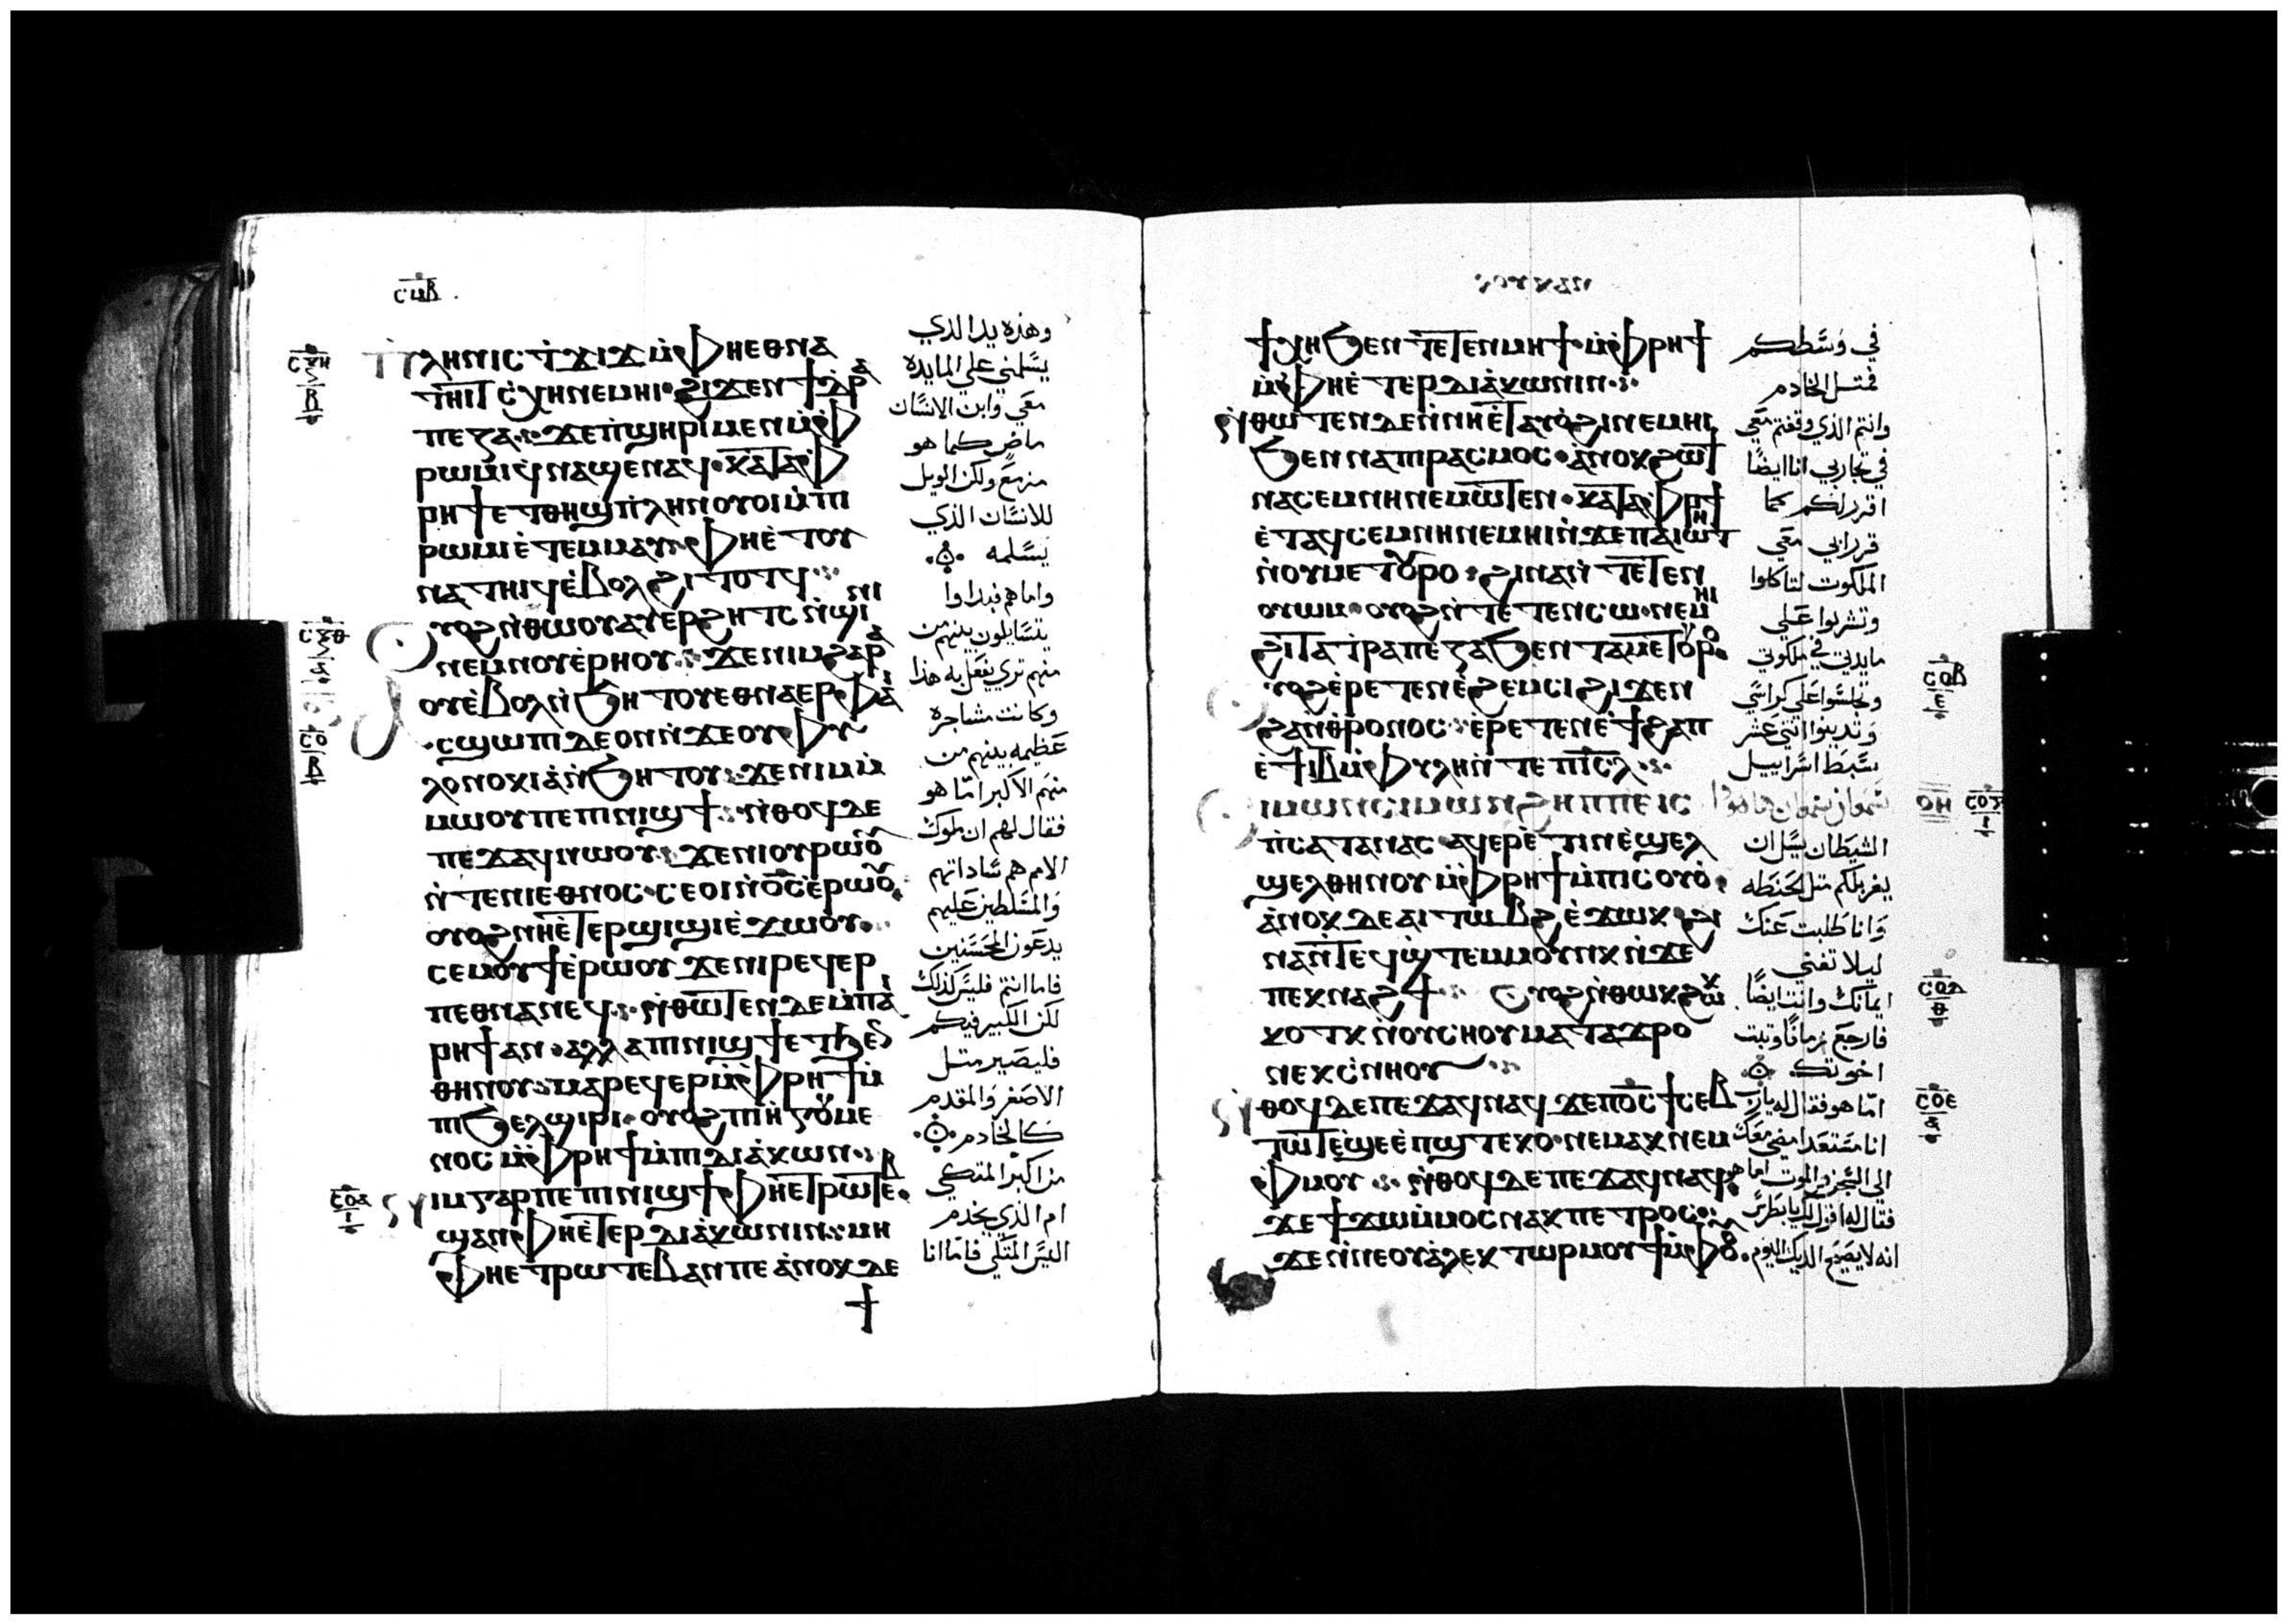 ⲥⲙⲃ
ⲡⲗⲏⲛ ⲓⲥ ⲧϫⲓϫ ⲙⲫⲏⲉⲑⲛⲁ
ⲧⲏⲓⲧ ⲥⲭⲏ ⲛⲉⲙⲏⲓ ϩⲓϫⲉⲛ ϯⲧⲣⲁ
ⲡⲉⲍⲁ ϫⲉ ⲡϣⲏⲣⲓ ⲙⲉⲛ ⲙⲫ
ⲣⲱⲙⲓ ϥⲛⲁϣⲉⲛⲁϥ ⲕⲁⲧⲁ ⲫ
ⲣⲏϯ ⲉⲧⲑⲏϣ ⲡⲗⲏⲛ ⲟⲩⲟⲓ ⲙⲡⲓ
ⲣⲱⲙⲓ ⲉⲧⲉⲙⲙⲁⲩ ⲫⲏⲉⲧⲟⲩ
ⲛⲁⲧⲏⲓϥ ⲉⲃⲟⲗ ϩⲓⲧⲟⲧϥ
ⲟⲩⲟϩ ⲛⲑⲱⲟⲩ ⲁⲩⲉⲣϩⲏⲧⲥ ⲛϣⲓⲛⲓ
ⲛⲉⲙ ⲛⲟⲩⲉⲣⲏⲟⲩ ϫⲉ ⲛⲓⲙ ϩⲁⲣⲁ
ⲟⲩⲉⲃⲟⲗ ⲛϧⲏⲧⲟⲩ ⲉⲑⲛⲁⲉⲣ ⲫⲁⲓ
ⲥϣⲱⲡⲓ ⲇⲉ ⲟⲛ ⲛϫⲉ ⲟⲩⲫⲩ
ⲗⲟⲛⲟⲕⲓⲁ ⲛϧⲏⲧⲟⲩ ϫⲉ ⲛⲓⲙ ⲙ
ⲙⲱⲟⲩ ⲡⲉ ⲡⲓⲛⲓϣϯ ⲛⲑⲟϥ ⲇⲉ
ⲡⲉϫⲁϥ ⲛⲱⲟⲩ ϫⲉ ⲛⲓⲟⲩⲣⲱⲟⲩ
ⲛⲧⲉ ⲛⲓⲉⲑⲛⲟⲥ ⲥⲉⲟⲓ ⲛⲟⲥ ⲉⲣⲱⲟⲩ
ⲟⲩⲟϩ ⲛⲏⲉⲧⲉⲣϣⲓϣⲓ ⲉϫⲱⲟⲩ
ⲥⲉⲙⲟⲩϯ ⲉⲣⲱⲟⲩ ϫⲉ ⲛⲓⲣⲉϥⲉⲣ
ⲡⲉⲑⲛⲁⲛⲉϥ ⲛⲑⲱⲧⲉⲛ ⲇⲉ ⲙⲡⲁⲓ
ⲣⲏϯ ⲁⲛ ⲁⲗⲗⲁ ⲡⲓⲛⲓϣϯ ⲉⲧϧⲉⲛ
ⲑⲏⲛⲟⲩ ⲙⲁⲣⲉϥⲉⲣ ⲙⲫⲣⲏϯ ⲙ
ⲡⲓϧⲉⲗϣⲓⲣⲓ ⲟⲩⲟϩ ⲡⲓⲏⲅⲟⲩⲙⲉ
ⲛⲟⲥ ⲙⲫⲣⲏϯ ⲙⲡⲓⲇⲓⲁⲕⲱⲛ
ⲛⲓⲙ ⲅⲁⲣ ⲡⲉ ⲡⲓⲛⲓϣϯ ⲫⲏⲉⲧⲣⲱⲧⲉⲃ
ϣⲁⲛ ⲫⲏⲉⲧⲉⲣⲇⲓⲁⲕⲱⲛⲓⲛ ⲙⲏ
ⲫⲏⲉⲧⲣⲱⲧⲉⲃ ⲁⲛ ⲡⲉ ⲁⲛⲟⲕ ⲇⲉ
ϯ
وهذه يد الذي
يسلمني على المايده
معي وابن الانسان
ماض كما هو
مزمع ولكن الويل
للانسان الذي
يسلمه
واما هم فبداوا
يتسايلون بينهم من
منهم تري يفعل به هذا
وكانت مشاجره
عظيمه بينهم من
منهم الاكبر اما هو
فقال لهم ان ملوك
الامم هم ساداتهم
والمتسلطين عليهم
يدعون المحسنين
فاما انتم فليس كذلك
لكن الكبير فيكم
فليصير متل
الاصغر والمقدم
كالخادم
من اكبر المتكي
ام الذي يخدم
اليس المتكي فاما انا
ⲥⲝⲏ
ⲃ
ⲥⲝⲑ
ⲁ
ⲥⲟ
ⲃ
ⲥⲟⲁ
ⲓ
ϯⲭⲏ ϧⲉⲛ ⲧⲉⲧⲉⲛⲙⲏϯ ⲙⲫⲣⲏϯ
ⲙⲫⲏⲉⲧⲉⲣⲇⲓⲁⲕⲱⲛⲓⲛ
ⲛⲑⲱⲧⲉⲛ ⲇⲉ ⲛⲏⲉⲧⲁⲩⲟϩⲓ ⲛⲉⲙⲏⲓ
ϧⲉⲛ ⲛⲁⲡⲓⲣⲁⲥⲙⲟⲥ ⲁⲛⲟⲕ ϩⲱ ϯ
ⲛⲁⲥⲉⲙⲛⲏ ⲛⲉⲙⲱⲧⲉⲛ ⲕⲁⲧⲁ ⲫⲣⲏϯ
ⲉⲧⲁϥⲥⲉⲙⲛⲏ ⲛⲉⲙⲏⲓ ⲛϫⲉ ⲡⲁⲓⲱⲧ
ⲛⲟⲩⲙⲉⲧⲟⲩⲣⲟ ϩⲓⲛⲁ ⲛⲧⲉⲧⲉⲛ
ⲟⲩⲱⲙ ⲟⲩⲟϩ ⲛⲧⲉⲧⲉⲛⲥⲱ ⲛⲉⲙⲏⲓ
ϩⲓ ⲧⲁⲧⲣⲁⲡⲉⲍⲁ ϧⲉⲛ ⲧⲁⲙⲉⲧⲟⲩⲣⲟ
ⲟⲩⲟϩ ⲉⲣⲉⲧⲉⲛⲉϩⲉⲙⲥⲓ ϩⲓϫⲉⲛ
ϩⲁⲛⲑⲣⲟⲛⲟⲥ ⲉⲣⲉⲧⲉⲛⲉϯϩⲁⲡ
ⲉϯⲓⲃ ⲙⲫⲩⲗⲏ ⲛⲧⲉ ⲡⲓⲥⲗ
ⲥⲓⲙⲱⲛ ⲥⲓⲙⲱⲛ ϩⲏⲡⲡⲉ ⲓⲥ
ⲡⲥⲁⲧⲁⲛⲁⲥ ⲁϥⲉⲣⲉⲧⲓⲛ ⲉϣⲉⲗ
ϣⲉⲗ ⲑⲏⲛⲟⲩ ⲙⲫⲣⲏϯ ⲙⲡⲓⲥⲟⲩⲟ
ⲁⲛⲟⲕ ⲇⲉ ⲁⲓⲧⲱⲃϩ ⲉϫⲱⲕ ϩⲓ
ⲛⲁ ⲛⲧⲉϥϣⲧⲉⲙⲙⲟⲩⲛⲕ ⲛϫⲉ
ⲡⲉⲕⲛⲁϩϯ ⲟⲩⲟϩ ⲛⲑⲱⲕ ϩⲱⲕ
ⲕⲟⲧⲕ ⲛⲟⲩⲥⲏⲟⲩ ⲙⲁⲧⲁϫⲣⲟ
ⲛⲉⲕⲥⲛⲏⲟⲩ
ⲛⲑⲟϥ ⲇⲉ ⲡⲉϫⲁϥ ⲛⲁϥ ϫⲉ ⲡⲟⲥ ϯⲥⲉⲃ
ⲧⲱⲧ ⲉϣⲉ ⲉⲡϣⲧⲉⲕⲟ ⲛⲉⲙⲁⲕ ⲛⲉⲙ
ⲫⲙⲟⲩ ⲛⲑⲟϥ ⲇⲉ ⲡⲉϫⲁϥ ⲛⲁϥ
ϫⲉ ϯϫⲱ ⲙⲙⲟⲥ ⲛⲁⲕ ⲡⲉⲧⲣⲟⲥ
ϫⲉ ⲛⲛⲉ ⲟⲩⲁⲗⲉⲕⲧⲱⲣ ⲙⲟⲩϯ ⲙⲫⲟⲟⲩ
في وسطكم
فمتل الخادم
وانتم الذي وقفتم معي
في تجاربي انا ايضا
اقرر لكم كما
قرر ابي معي
الملكوت لتاكلوا
وتشربوا علي
مايدتي في ملكوتي
وتجلسوا على كراسي
وتدينوا اتني عشر
سبط اسراييل
سمعان سمعان هاهوذا
الشيطان يسل ان
يغربلكم متل الحنطه
وانا طلبت عنك
ليلا تفني
ايمانك وانت ايضا
فارجع زمانا وتبت
اخوتك
اما هو فقال له يارب
انا مستعد امضي معك
الى السجن والموت اما هو
فقال له اقول لك يا بطرس
انه لا يصيح الديك اليوم
ⲥⲟⲃ
ⲉ
ⲟⲏ
ⲥⲟⲅ
ⲓ
ⲥⲟⲇ
ⲑ
ⲥⲟⲉ
ⲁ